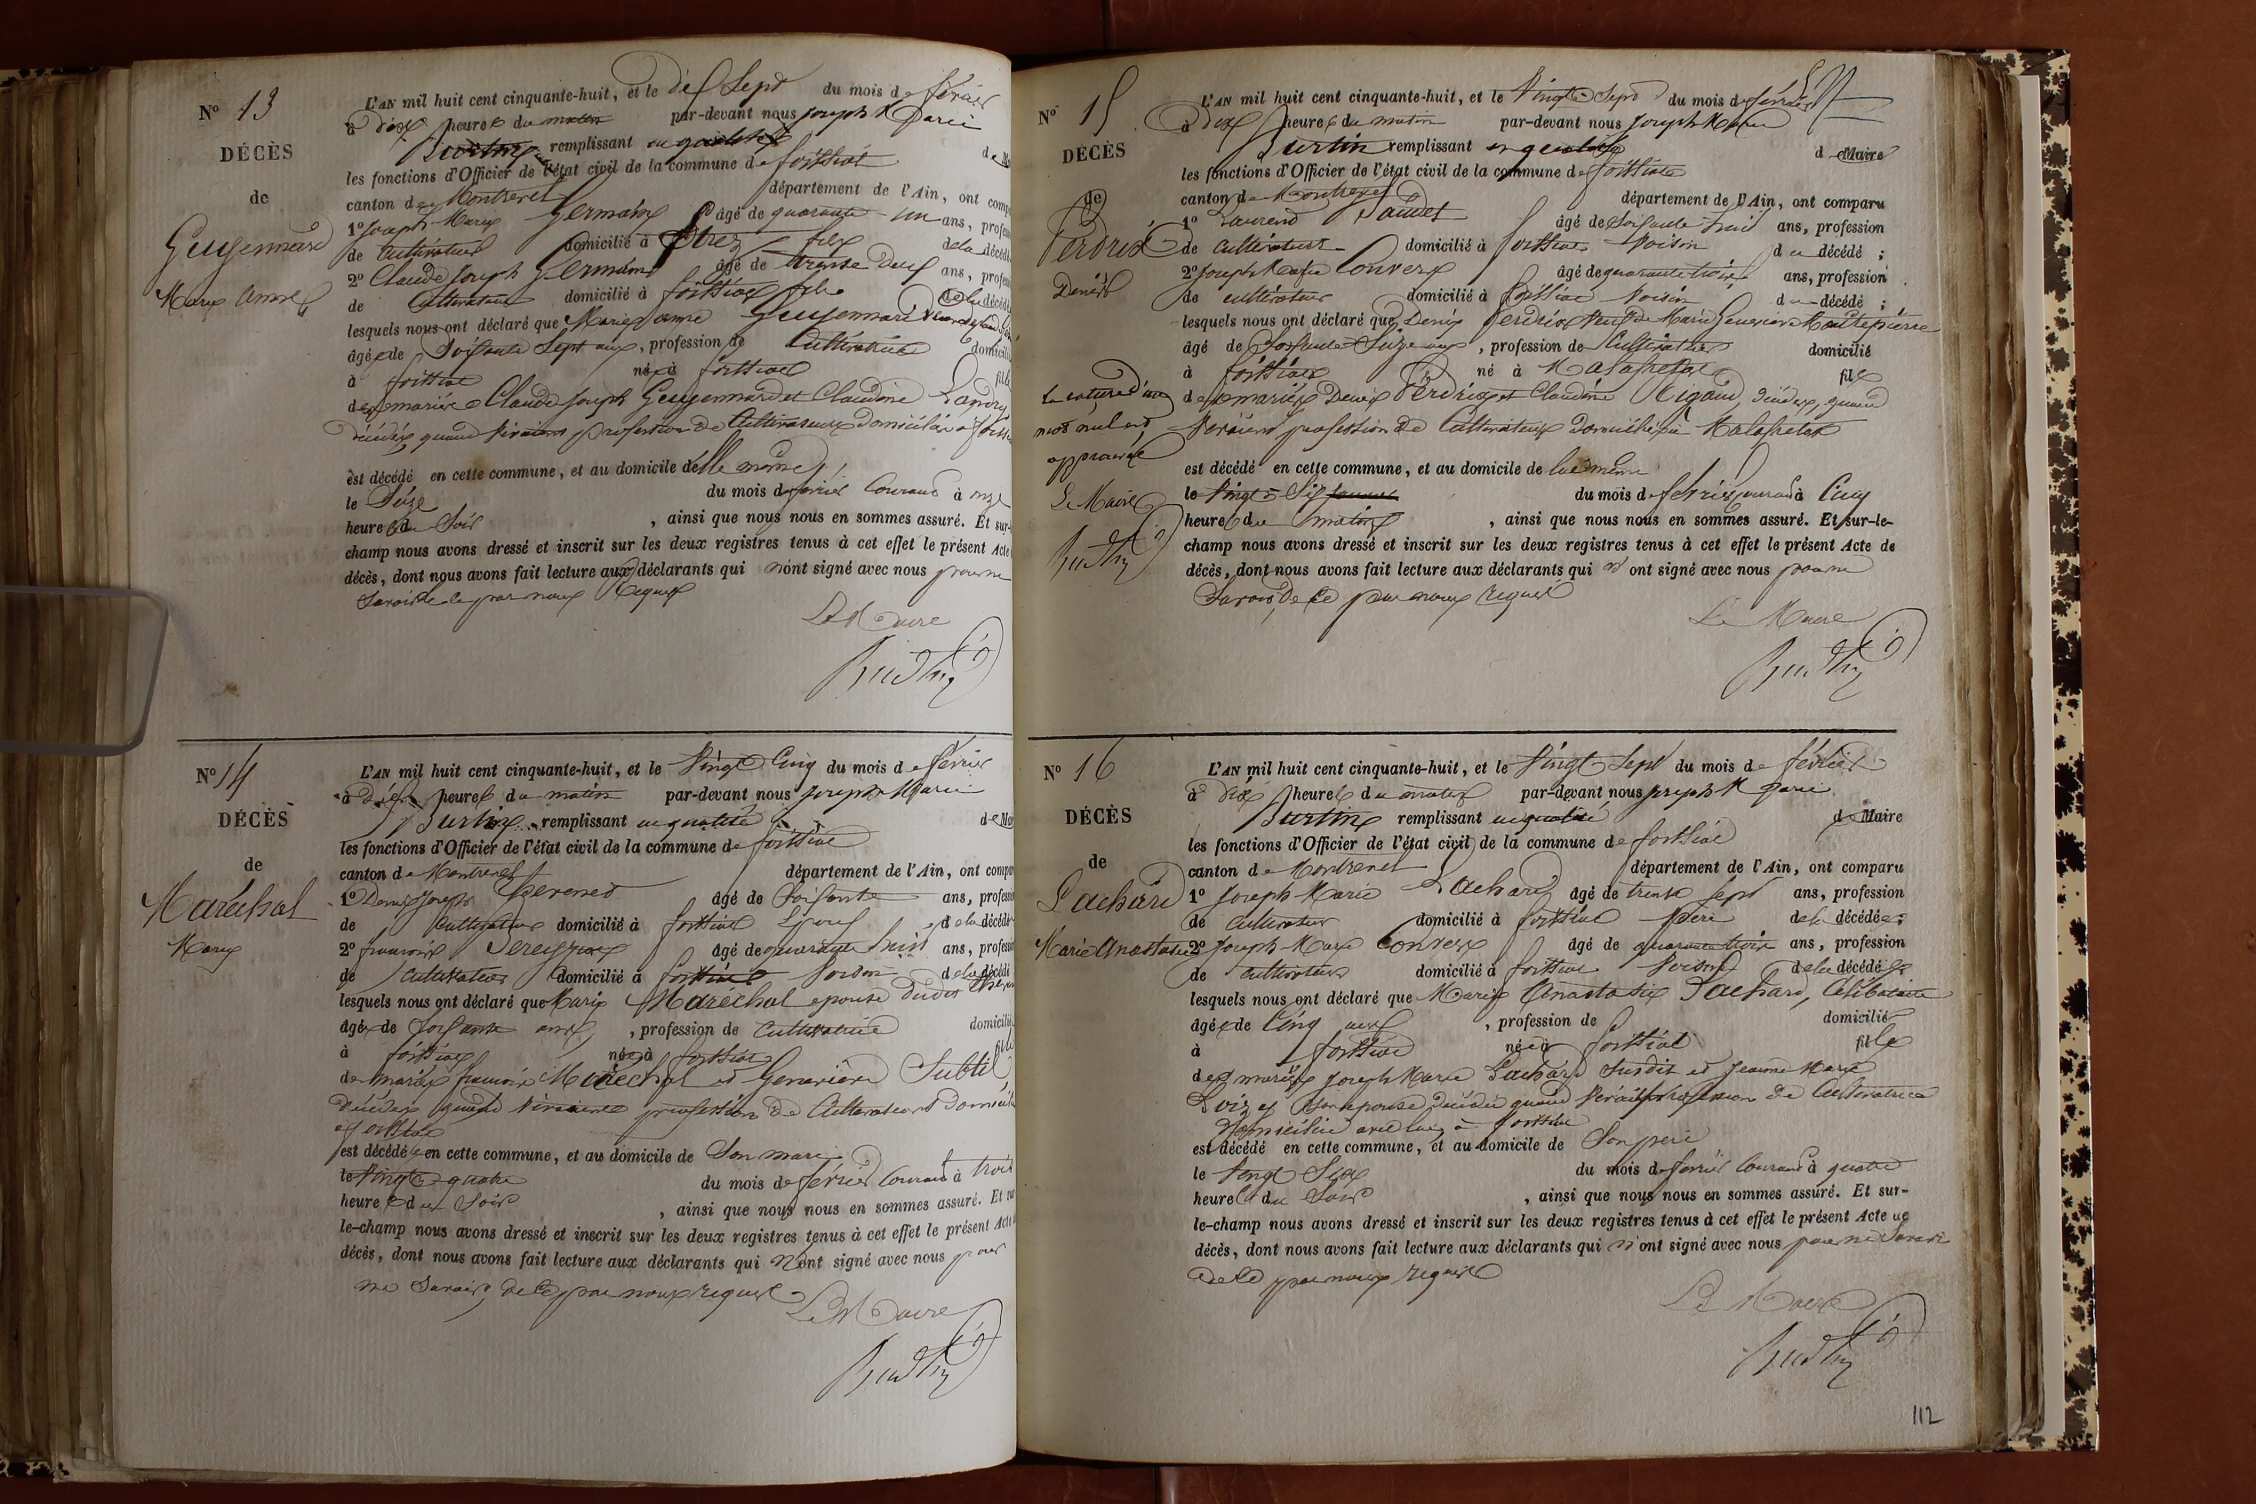 N° 13
DÉCÈS
de
Guyennard
Marie Anne
L'AN mil huit cent cinquante-huit, et le dix Sept du mois de février
à dix heures du matin par-devant nous Joseph Marie
Burtin remplissant en qualité de
les fonctions d'Officier de l'état civil de la commune de foissiat
canton de Montrevel département de l'Ain, ont comp
1° Joseph Marie Germain âgé de quarante un ans, profess
de Cultivateur domicilié à fils de la décéd
2° Claude Joseph Germain âgé de trente deux ans, profess
de Cultivateur domicilié à foissiat fils de la décéd
lesquels nous ont déclaré que Marie anne Guyennard
âgée de Soixante Sept ans, profession de Cultivatrice domicili
à foissiat née à foissiat fille
des mariés Claude Joseph Guyennard et Claudine
décédés quand vivaient profession de Cultivateurs domiciliés à
est décédé en cette commune, et au domicile d'elle même
le Seize du mois de février Courant à onze
heures du Soir, ainsi que nous nous en sommes assuré. Et sur-
champ nous avons dressé et inscrit sur les deux registres tenus à cet effet le présent Acte
décès, dont nous avons fait lecture aux déclarants qui n'ont signé avec nous pour ne
Savoir de ce par nous requis
Le Maire
Burtin
N° 14
DÉCÈS
de
Maréchal
Marie
L'AN mil huit cent cinquante-huit, et le Vingt Cinq du mois de février
à dix heures du matin par-devant nous Joseph Marie
Burtin remplissant en qualité de
les fonctions d'Officier de l'état civil de la commune de foissiat
canton de Montrevel département de l'Ain, ont comp
1° Denis Joseph âgé de Soixante ans, profess
de Cultivateur domicilié à foissiat Epoux de la décédé
2° francois âgé de quarante huit ans, profess
de Cultivateur domicilié à foissiat Voisin de la décédé
lesquels nous ont déclaré que Marie Maréchal epouse dudit
âgée de Soixante ans, profession de Cultivatrice domicilié
à foissiat née à foissiat fille
des mariés francois Maréchal et Genevieve Subtil
décédés quand vivaient profession de Cultivateurs domicili
à foissiat
est décédé en cette commune, et au domicile de Son mari
le Vingt quatre du mois de février Courant à trois
heures du Soir, ainsi que nous nous en sommes assuré. Et sur
le-champ nous avons dressé et inscrit sur les deux registres tenus à cet effet le présent Acte
décès, dont nous avons fait lecture aux déclarants qui n'ont signé avec nous pour
ne Savoir de ce par nous requis
Le Maire
Burtin
N° 15
DÉCÈS
de
Perdrix
Denis
La rature d'un
mot nul est
approuvée
Le Maire
Burtin
L'AN mil huit cent cinquante-huit, et le Vingt Sept du mois de février
à dix heures du matin par-devant nous Joseph Marie
Burtin remplissant en qualité de Maire
les fonctions d'Officier de l'état civil de la commune de foissiat
canton de Montrevel département de l'Ain, ont comparu
1° Laurend âgé de Soixante huit ans, profession
de Cultivateur domicilié à foissiat Voisin du décédé ;
2° Joseph Marie Convert âgé de quarante trois ans, profession
de cultivateur domicilié à foissiat Voisin du décédé ;
lesquels nous ont déclaré que Denis Perdrix Veuf de Marie Genevieve
âgé de Soixante Seize ans, profession de Cultivateur domicilié
à foissiat né à Malafretaz fils
des mariés Denis Perdrix et Claudine Rigaud, décédés, quand
Vivaient profession de Cultivateurs domiciliés à Malafretaz
est décédé en cette commune, et au domicile de lui même
le Vingt Six du mois de février courant à Cinq
heures du matin, ainsi que nous nous en sommes assuré. Et sur-le-
champ nous avons dressé et inscrit sur les deux registres tenus à cet effet le présent Acte de
décès, dont nous avons fait lecture aux déclarants qui n'ont signé avec nous pour ne
Savoir de Ce par nous requis
Le Maire
Burtin
N° 16
DÉCÈS
de
Pachard
Marie Anastasie
L'AN mil huit cent cinquante-huit, et le Vingt Sept du mois de février
à dix heures du matin par-devant nous Joseph Marie
Burtin remplissant en qualité de Maire
les fonctions d'Officier de l'état civil de la commune de foissiat
canton de Montrevel département de l'Ain, ont comparu
1° Joseph Marie Pachard âgé de trente Sept ans, profession
de Cultivateur domicilié à foissiat Père de la décédée ;
2° Joseph Marie Convert âgé de quarante trois ans, profession
de Cultivateur domicilié à foissiat Voisin de la décédée
lesquels nous ont déclaré que Marie Anastasie Pachard, Célibataire
âgée de Cinq ans, profession de domicilié
à foissiat née à foissiat fille
des mariés Joseph Marie Pachard Susdit et Jeanne Marie
Son epouse décédée quand vivait profession de Cultivatrice
domiciliée avec lui à foissiat
est décédé en cette commune, et au domicile de Son père
le Vingt Six du mois de février Courant à quatre
heures du Soir, ainsi que nous nous en sommes assuré. Et sur-
le-champ nous avons dressé et inscrit sur les deux registres tenus à cet effet le présent Acte de
décès, dont nous avons fait lecture aux déclarants qui n'ont signé avec nous pour ne Savoir
de Ce par nous requis
Le Maire
Burtin
112